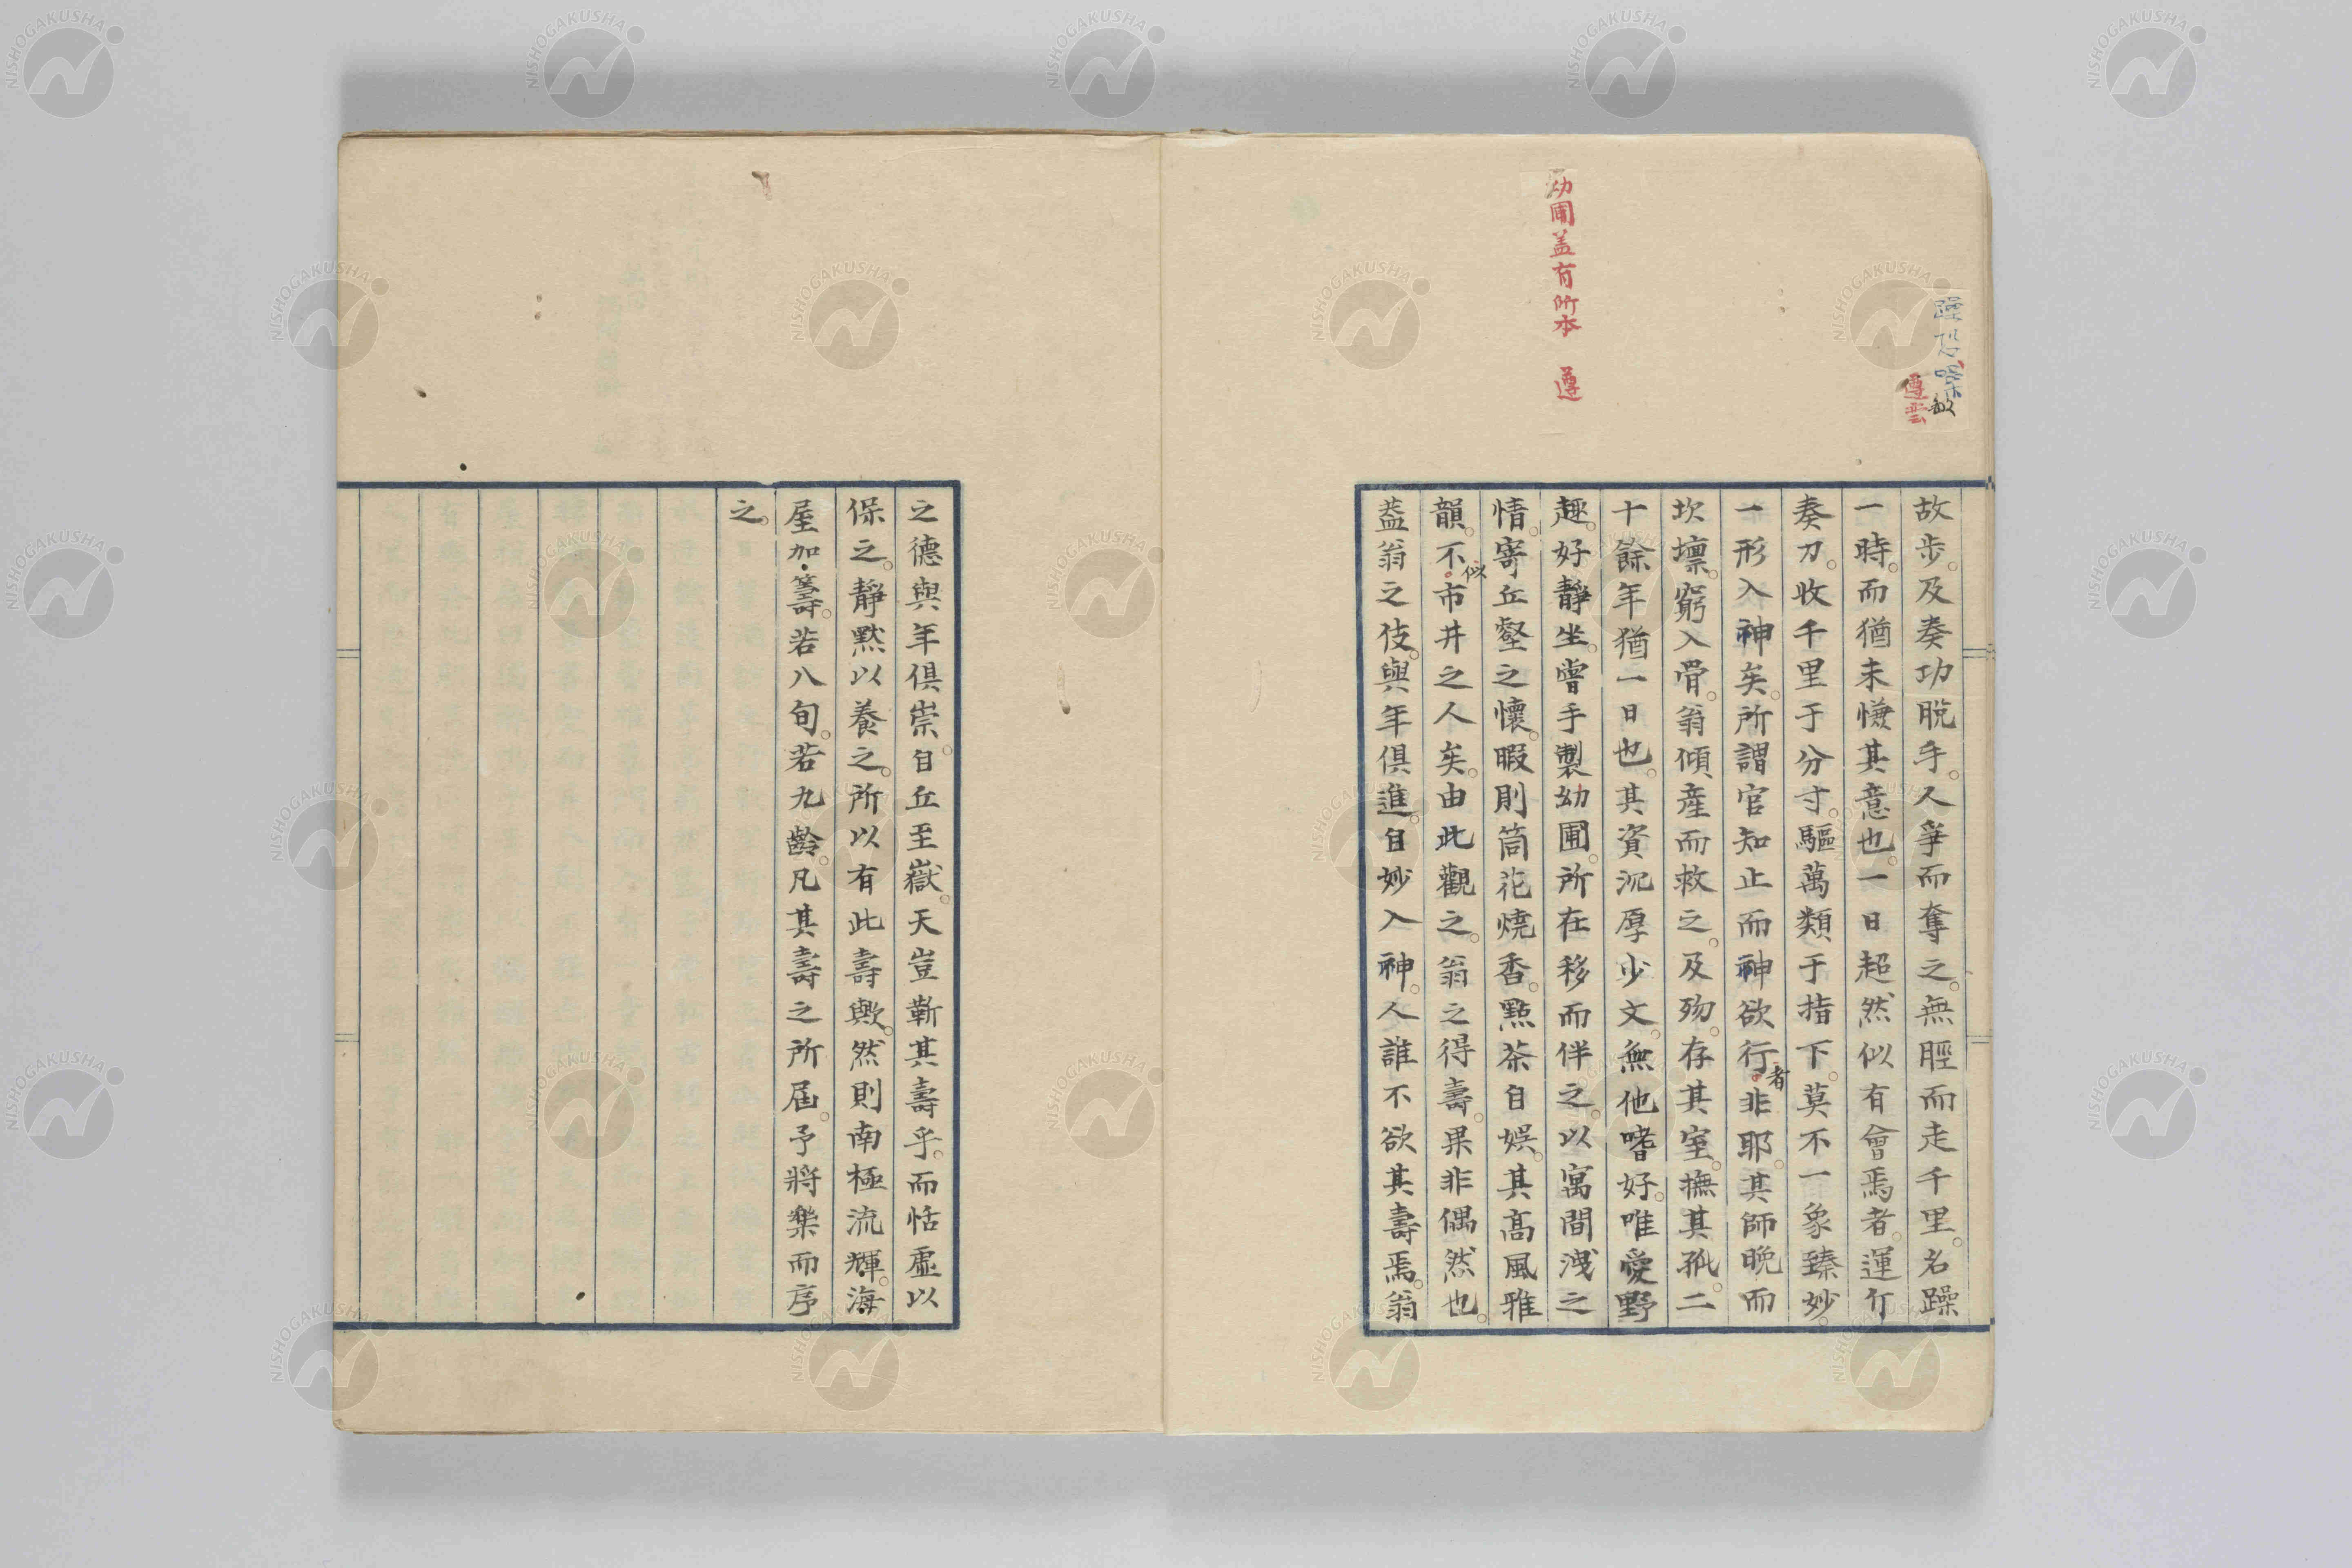 故步。及奏功脫手。人爭而奪之。無脛而走千里。名躁
一時。而猶未慊其意也。一日超然似有會焉者。運斤
奏刀。收千里于分寸。驅萬類于指下。莫不一象臻妙。
一形入神矣。所謂官知止而神欲行者。非耶。其師晚而
坎壈。窮入骨。翁傾產而救之。及歿。存其室。撫其孤。二
十餘年猶一日也。其資沉厚少文。無他嗜好。唯愛野
趣。好靜坐。嘗手製幼圃。所在移而伴之。以寓閒淺之
情。寄丘壑之懷。暇則筒花燒香。點茶自娛。其高風雅
韻。不似市井之人矣。由此觀之。翁之得壽。果非偶然也。
葢翁之伎。與年俱進。自妙入神。人誰不欲其壽焉。翁
幼圃葢有所本 遵
躁恐噪 敏
遵云
之德與年俱崇。自丘至嶽。天豈靳其壽乎。而恬虛以
保之。靜默以養之。所以有此壽歟。然則南極流輝。海
屋加籌。若八旬。若九齡。凡其壽之所屆。予將樂而序
之。
NISHOGAKUSHA